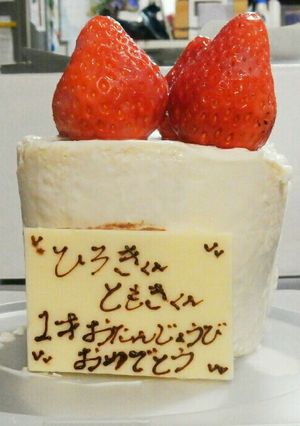 ひろきくん
ともきくん
1才おたんじょうび
おめでとう